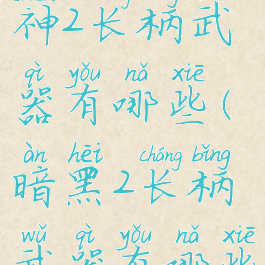 神2长柄武
qì yǒu nǎ xiē
器有哪些(
àn hēi cháng bǐng
暗黑2长柄
wǔ qì yǒu nǎ xiē
武器有哪些